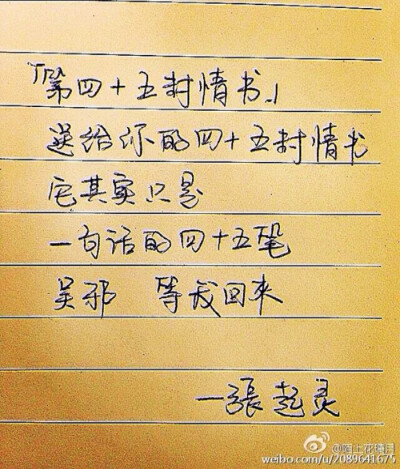 「第四十五封情书」
送给你的四十五封情书
它其实只是
一句话的四十五笔
吴邪 等我回来
—張起灵
weibo.com/u/2089641675